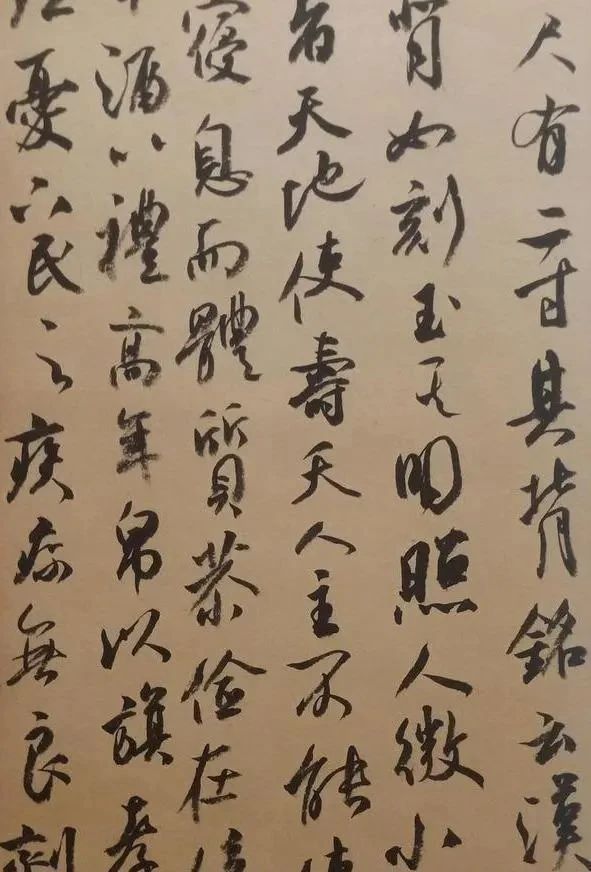 尺有二寸其背銘云漢
背如刻玉其明照人微小
者天地使壽夭人主不能使
寢息而體質恭儉在
酒以禮高年帛以旗孝
憂下民之疾病無良劑